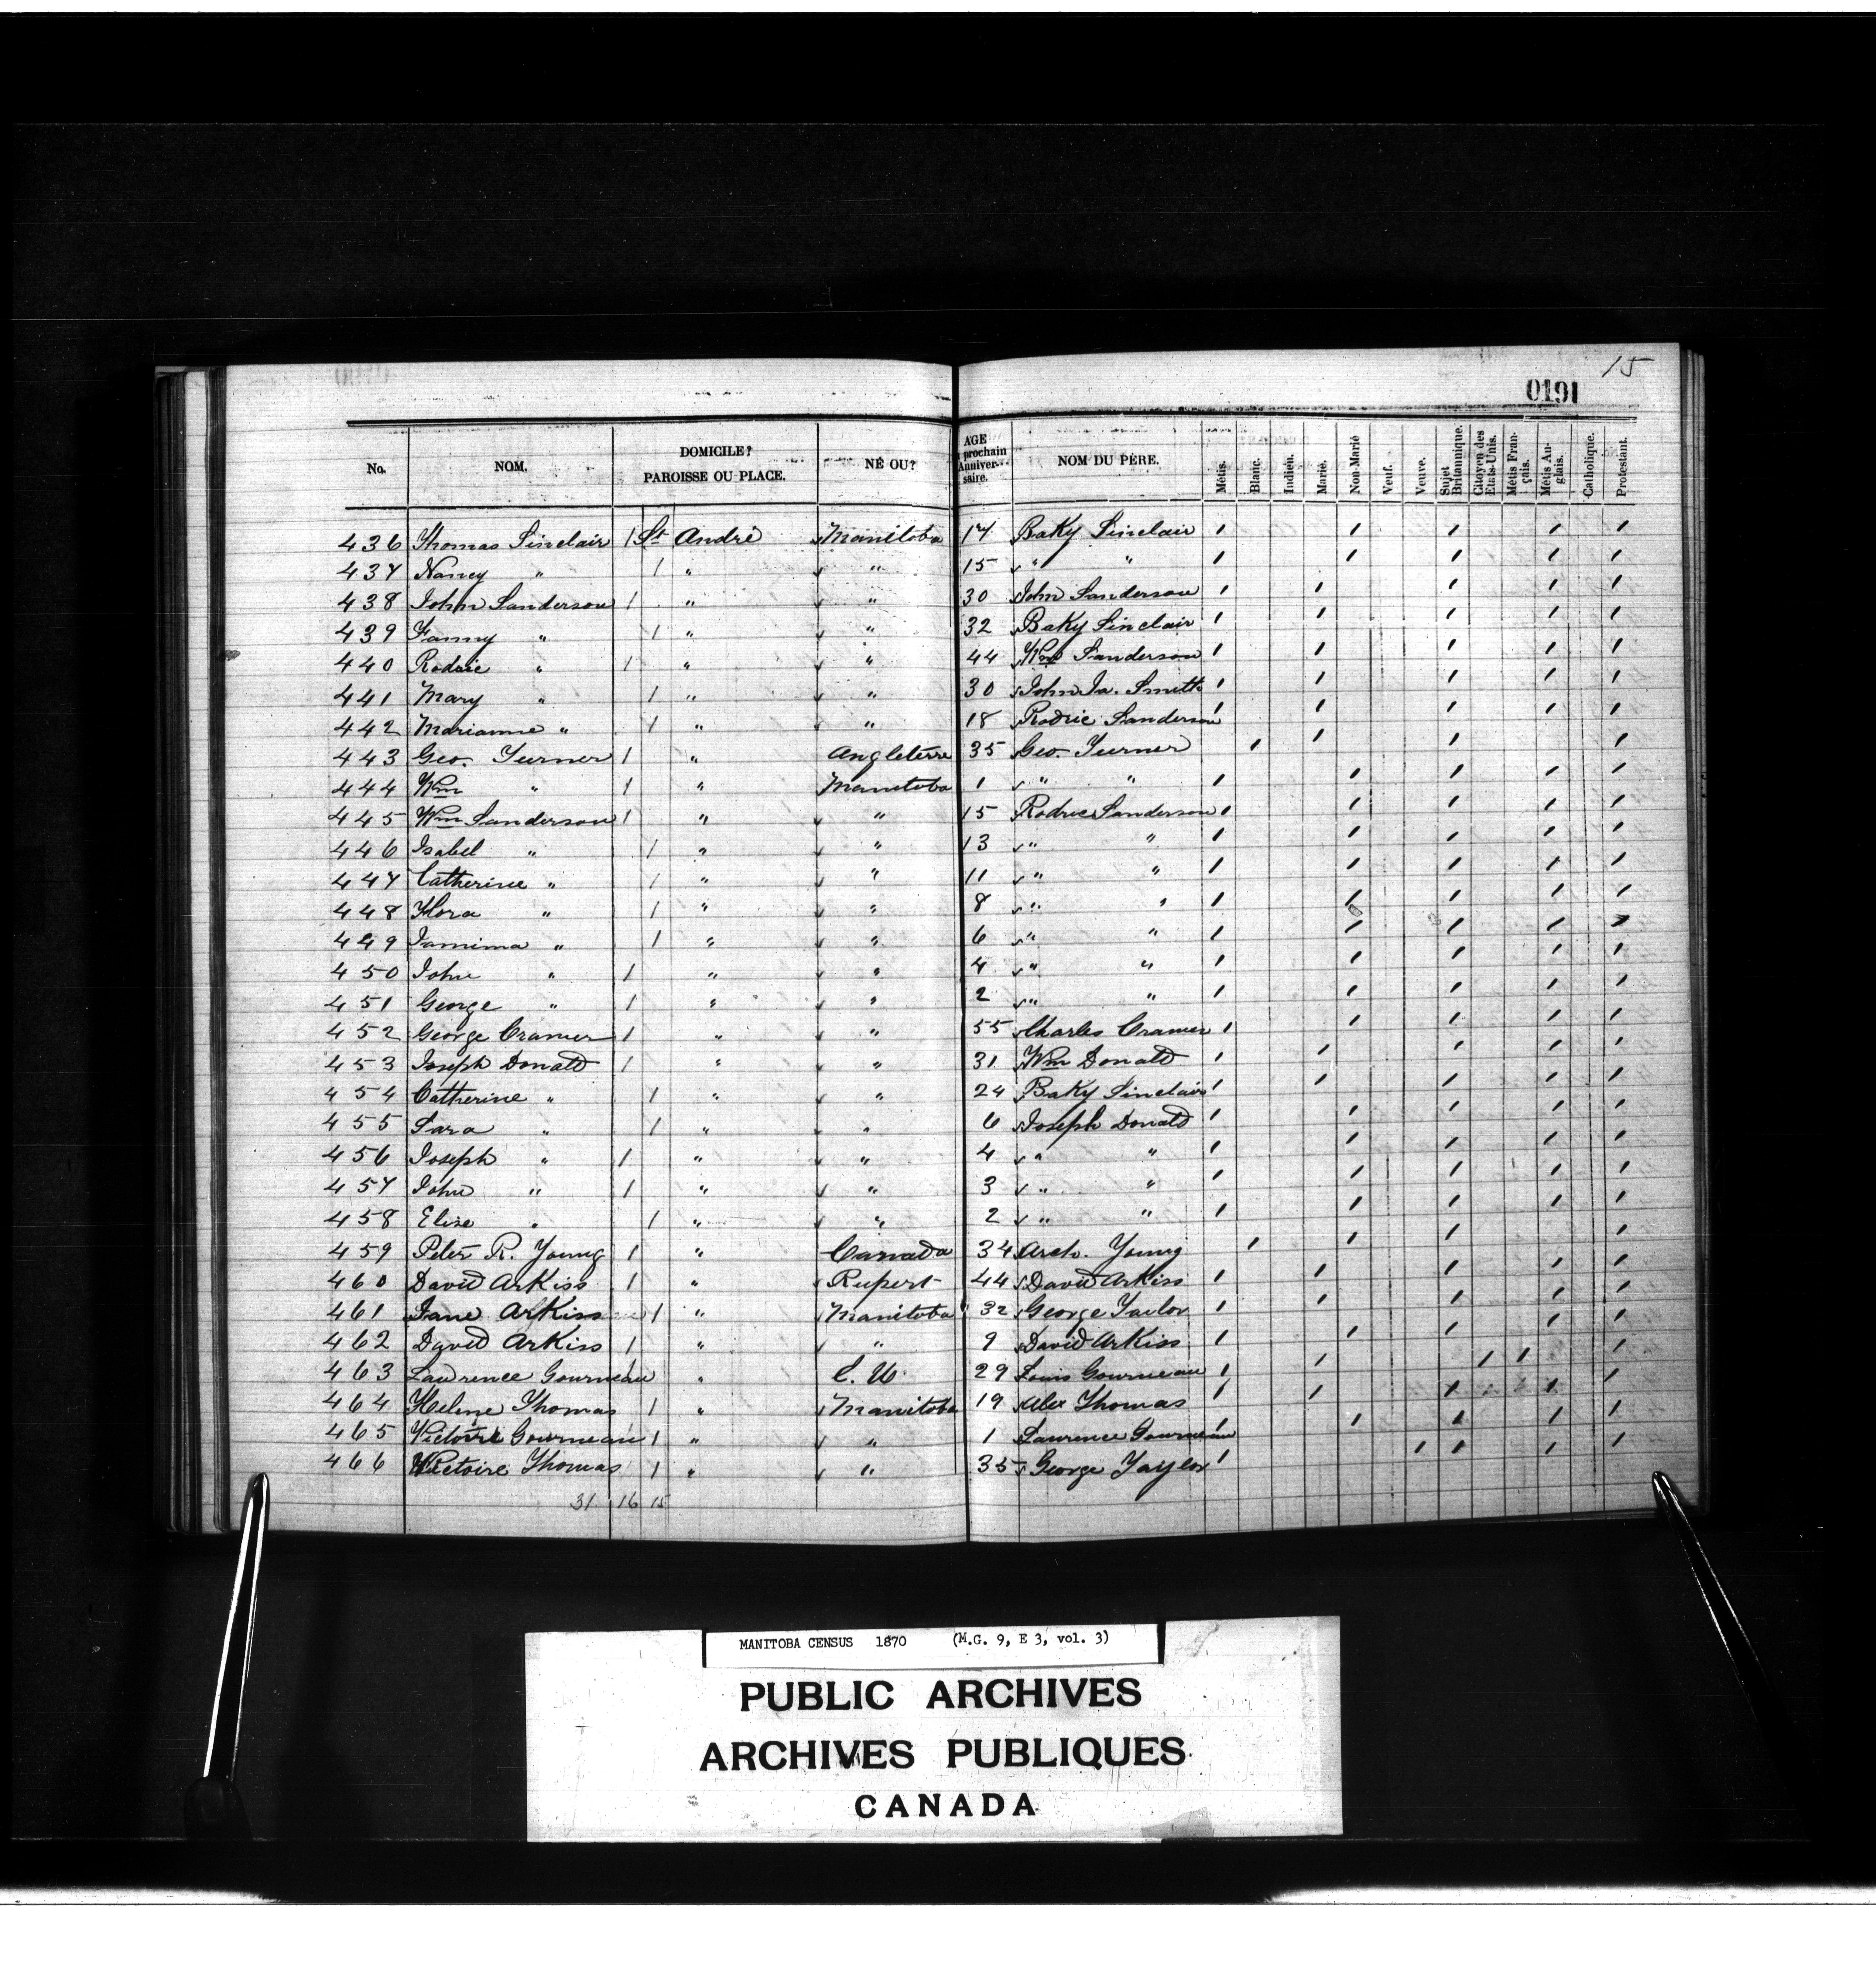 15
0191
No. NOM. DOMICILE? PAROISSE OU PLACE. NÉ OU? AGE prochain Anniver-saire. NOM DU PÈRE. Métis. Blanc. Indien. Marié. Non-Marié Veuf. Veuve. Sujet Britannique. Citoyen des Etats-Unis. Métis Fran-çais. Métis An-glais. Catholique. Protestant.
436 Thomas Sinclair 1 St André Manitoba 17 Baky Sinclair 1 1 1 1 1
437 Nancy " 1 " " 15 " " 1 1 1 1 1
438 John Sanderson 1 " " 30 John Sanderson 1 1 1 1 1
439 Fanny " 1 " " 32 Baky Sinclair 1 1 1 1 1
440 Rodric " 1 " " 44 Wm Sanderson 1 1 1 1 1
441 Mary " 1 " " 30 John Ja. Smith 1 1 1 1 1
442 Marianne " 1 " " 18 Rodric Sanderson 1 1 1 1 1
443 Geo. Turner 1 " Angleterre 35 Geo. Turner 1 1 1 1
444 Wm " 1 " Manitoba 1 " " 1 1 1 1 1
445 Wm Sanderson 1 " " 15 Rodric Sanderson 1 1 1 1 1
446 Isabel " 1 " " 13 " " 1 1 1 1 1
447 Catherine " 1 " " 11 " " 1 1 1 1 1
448 Flora " 1 " " 8 " " 1 1 1 1 1
449 Jamima " 1 " " 6 " " 1 1 1 1 1
450 John " 1 " " 4 " " 1 1 1 1 1
451 George " 1 " " 2 " " 1 1 1 1 1
452 George Cramer 1 " " 55 Charles Cramer 1 1 1 1 1
453 Joseph Donald 1 " " 31 Wm Donald 1 1 1 1 1
454 Catherine " 1 " " 24 Baky Sinclair 1 1 1 1 1
455 Sara " 1 " " 6 Joseph Donald 1 1 1 1 1
456 Joseph " 1 " " 4 " " 1 1 1 1 1
457 John " 1 " " 3 " " 1 1 1 1 1
458 Elise " 1 " " 2 " " 1 1 1 1 1
459 Peter R. Young 1 " Canada 34 Arch. Young 1 1 1 1
460 David Arkiss 1 " Rupert 44 David Arkiss 1 1 1 1 1
461 Jane Arkiss 1 " Manitoba 32 George Taylor 1 1 1 1 1
462 David Arkiss 1 " " 9 David Arkiss 1 1 1 1 1
463 Lawrence Gourneau 1 " E. U. 29 Louis Gourneau 1 1 1 1 1
464 Helene Thomas 1 " Manitoba 19 Alex Thomas 1 1 1 1 1
465 Victoire Gourneau 1 " " 1 Laurence Gourneau 1 1 1 1 1
466 Victoire Thomas 1 " " 35 George Taylor 1 1 1 1 1
31 16 15
MANITOBA CENSUS 1870 (M.G. 9, E 3, vol. 3)
PUBLIC ARCHIVES
ARCHIVES PUBLIQUES
CANADA